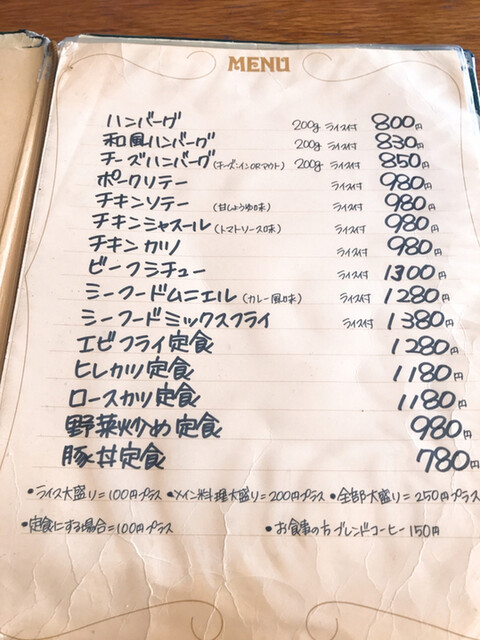 MENU
ハンバーグ 200g ライス付 800円
和風ハンバーグ 200g ライス付 830円
チーズハンバーグ(チーズ:インORアウト) 200g ライス付 850円
ポークソテー ライス付 980円
チキンソテー (甘しょうゆ味) ライス付 980円
チキンシャスール(トマトソース味) ライス付 980円
チキンカツ ライス付 980円
ビーフシチュー ライス付 1300円
シーフードムニエル (カレー風味) ライス付 1280円
シーフードミックスフライ ライス付 1380円
エビフライ定食 1280円
ヒレカツ定食 1180円
ロースカツ定食 1180円
野菜炒め定食 980円
豚丼定食 780円
•ライス大盛り=100円プラス •メイン料理大盛り=200円プラス •全部大盛り=250円プラス
•定食にする場合=100円プラス •お食事の方ブレンドコーヒー150円